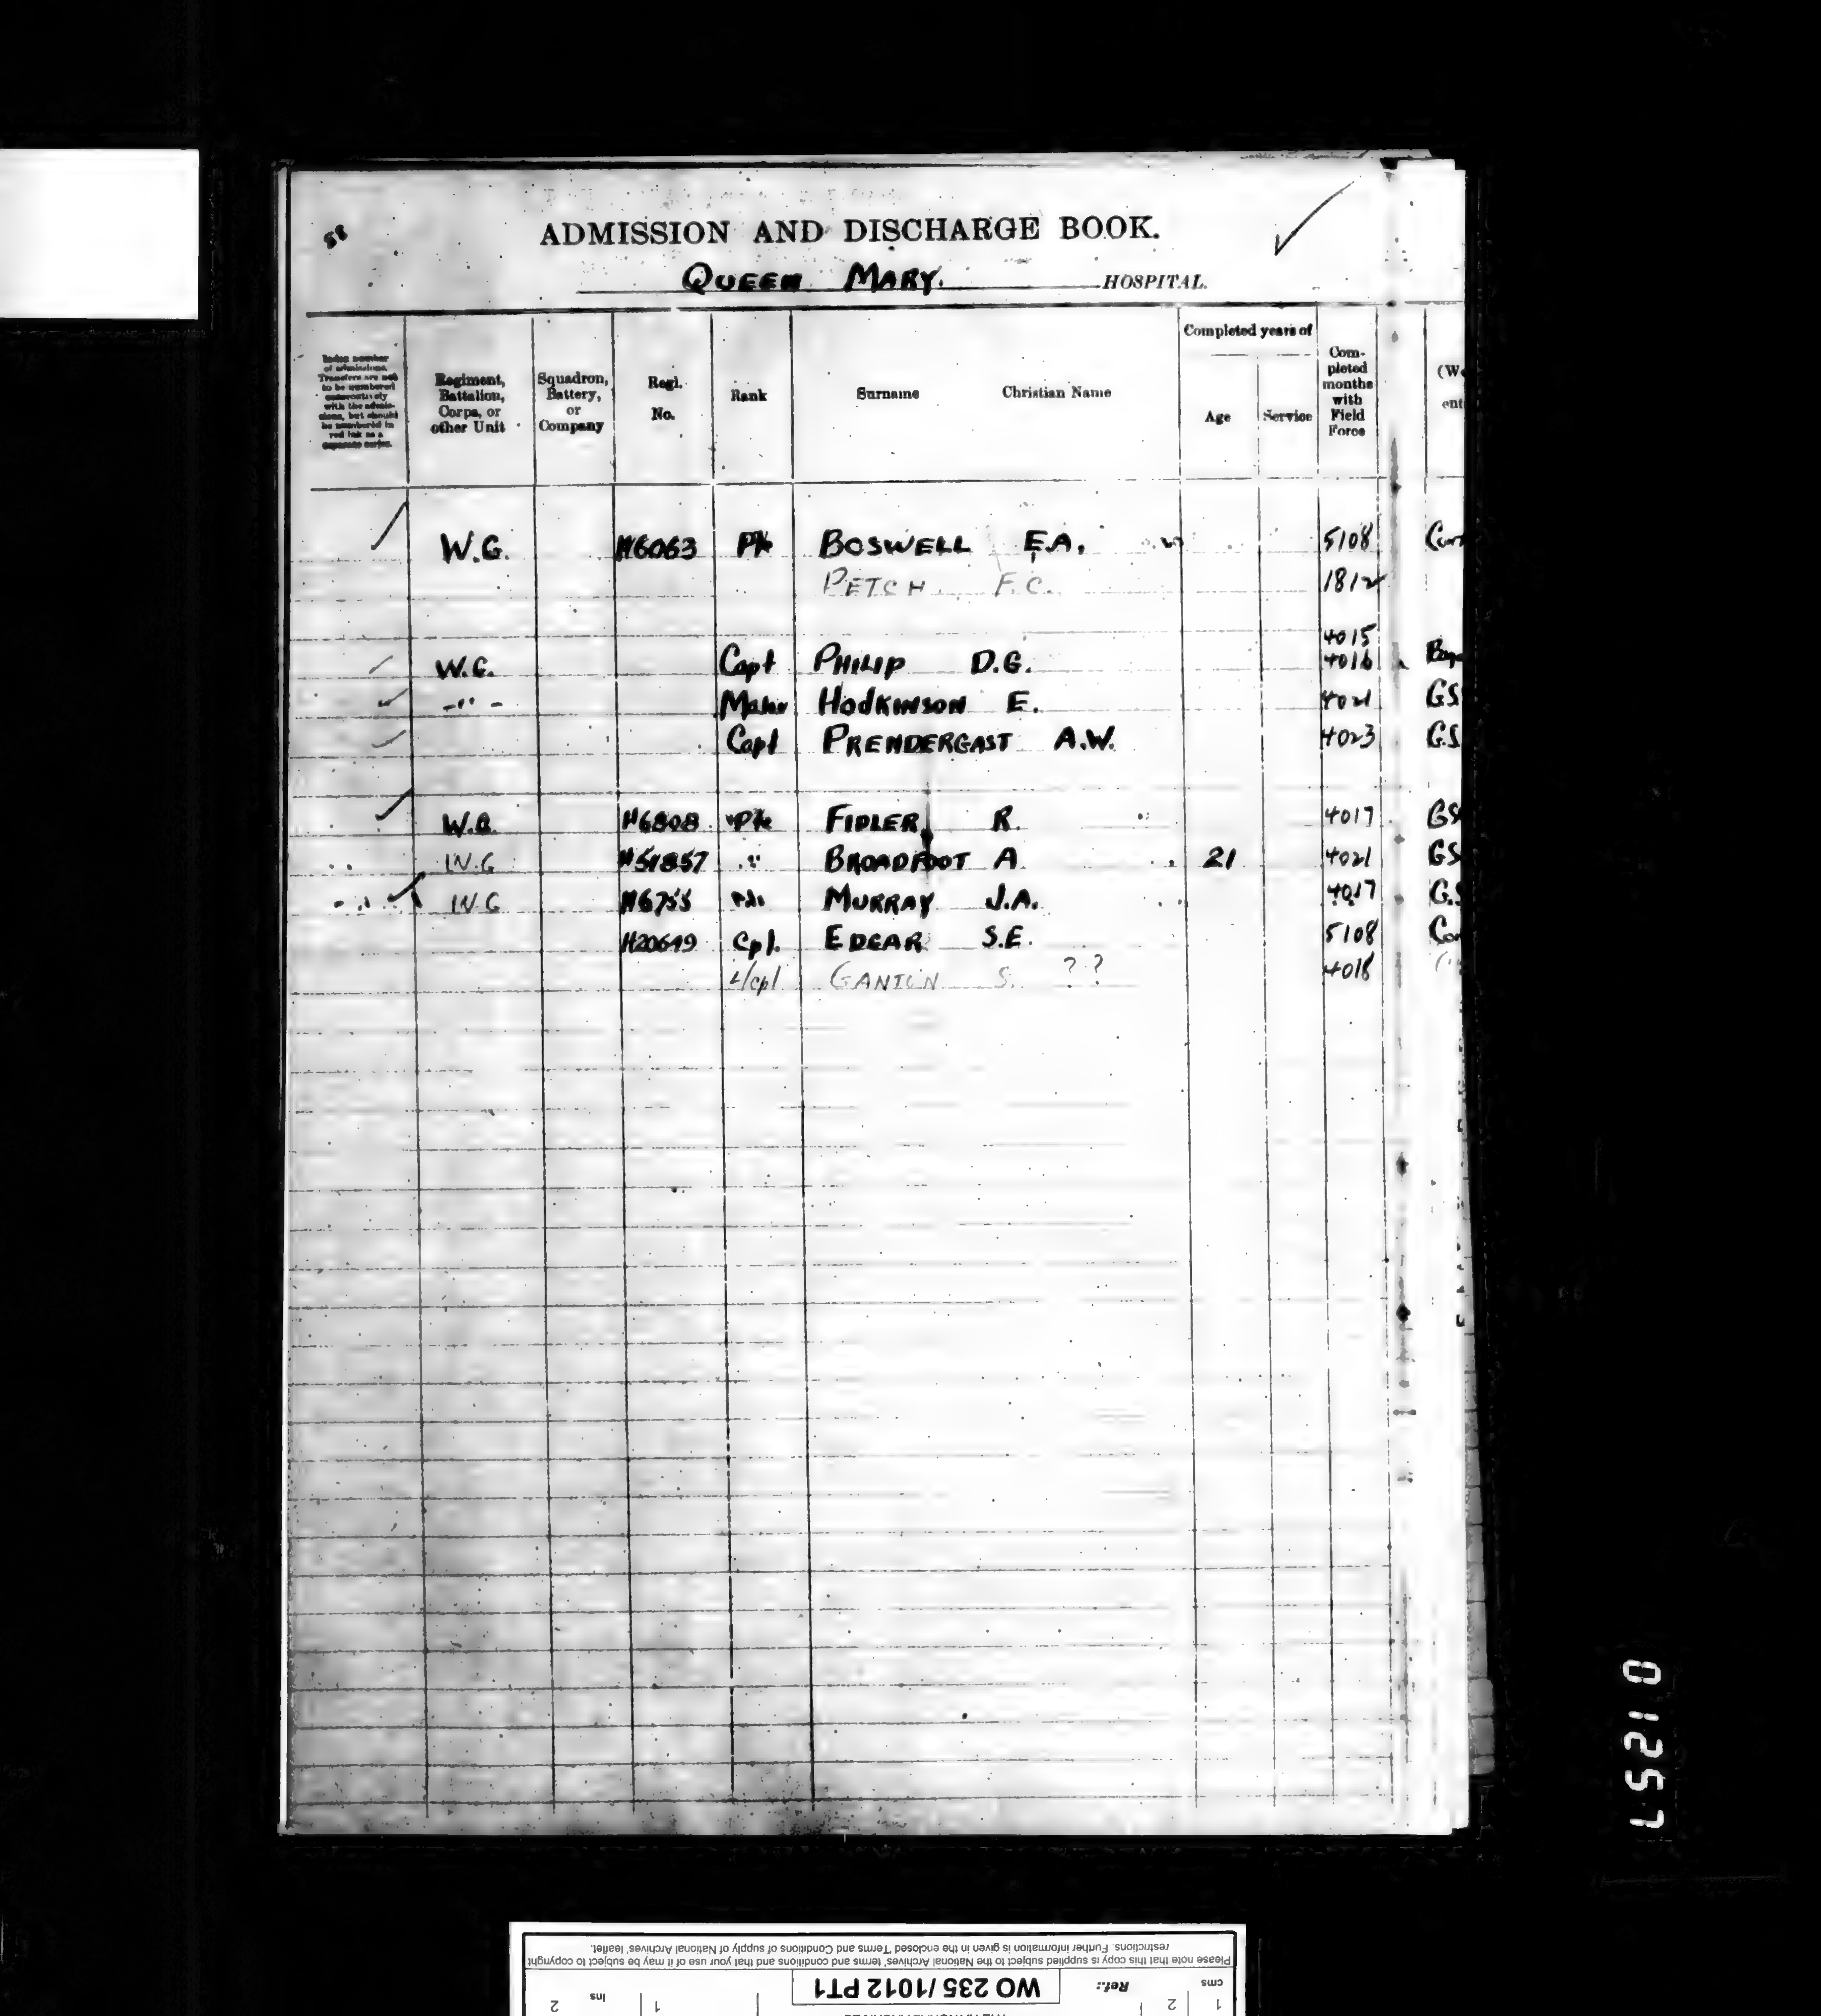 58
ADMISSION AND DISCHARGE BOOK.
QUEEN MARY. HOSPITAL.
Completed years of
Index number of admissions. Transfers are not to be numbered consecutively with the admissions, but should be numbered in red ink as a separate series.
Regiment, Battalion, Corps, or other Unit
Squadron, Battery, or Company
Regl. No.
Rank
Surname
Christian Name
Age
Service
Com-pleted months with Field Force
W.G. H6063 Pte BOSWELL E.A. 5108
PETCH F.C. 1812
4015
W.G. Capt PHILIP D.G. 4016
-"- Major HODKINSON E. 4021 GS
Capt PRENDERGAST A.W. 4023 G.S
W.G. H6808 Pte FIDLER R. 4017 GS
W.G H51857 " BROADFOOT A 21 4021 GS
W.G H6755 Pte MURRAY J.A. 4017 G.S
H20649 Cpl. EDGAR S.E. 5108
L/Cpl GANTON S. ?? 4018
01257
Please note that this copy is supplied subject to the National Archives' terms and conditions and that your use of it may be subject to copyright
restrictions. Further information is given in the enclosed 'Terms and Conditions of supply of National Archives' leaflet.
cms 1 2 Ref.: WO 235 / 1012 PT1 1 Ins 2